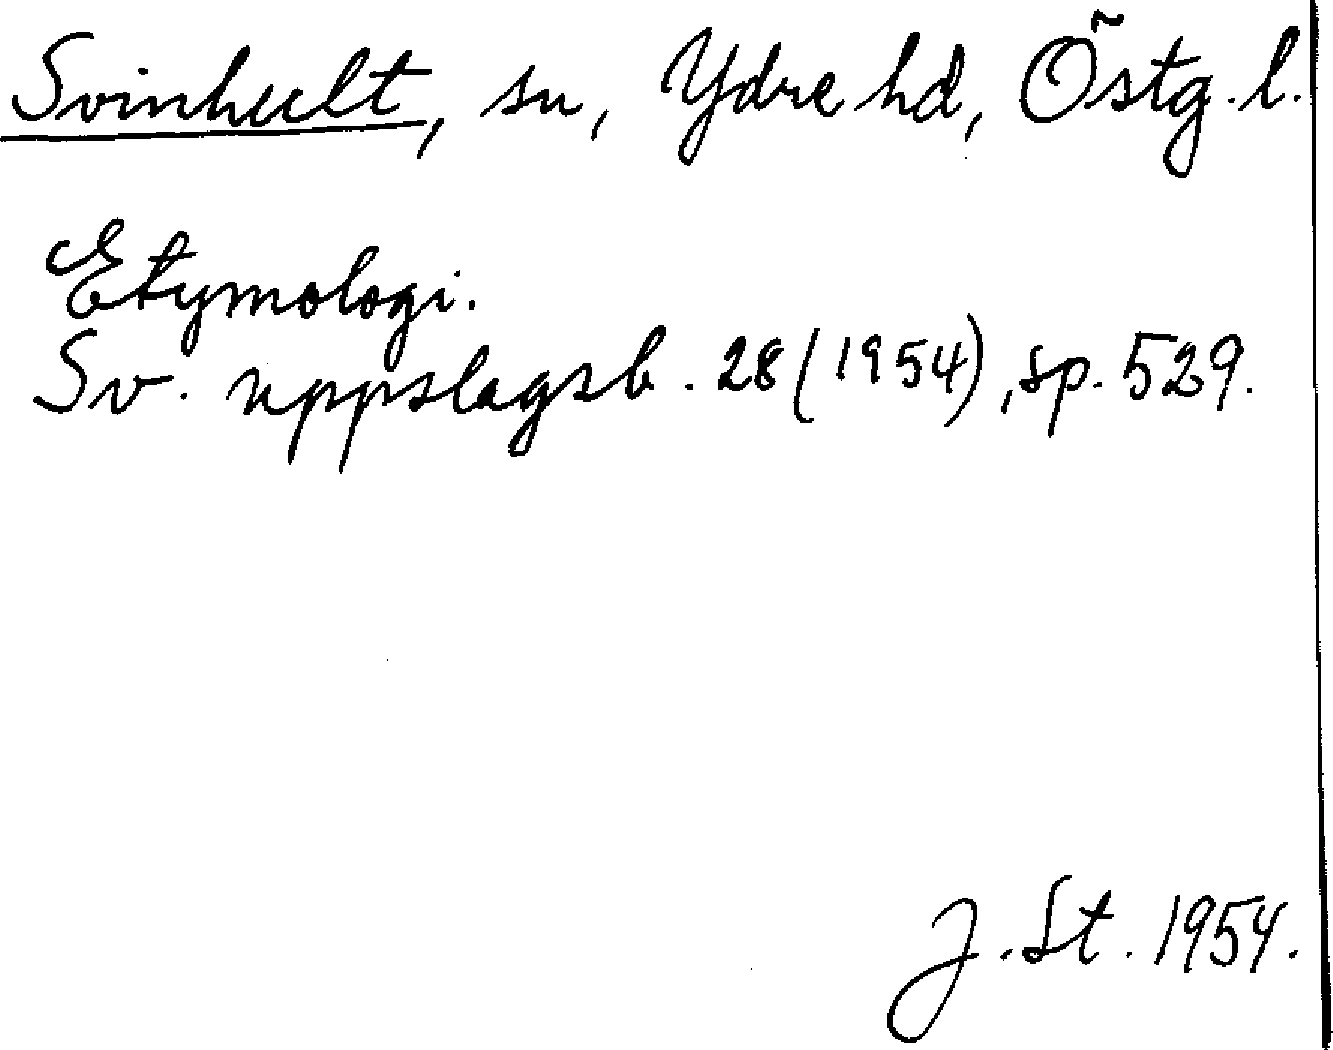 Svinhult, sn, Ydre hd, Östg. l.
Etymologi.
Sv. uppslagsb. 28 (1954), sp. 529.
J. St. 1954.